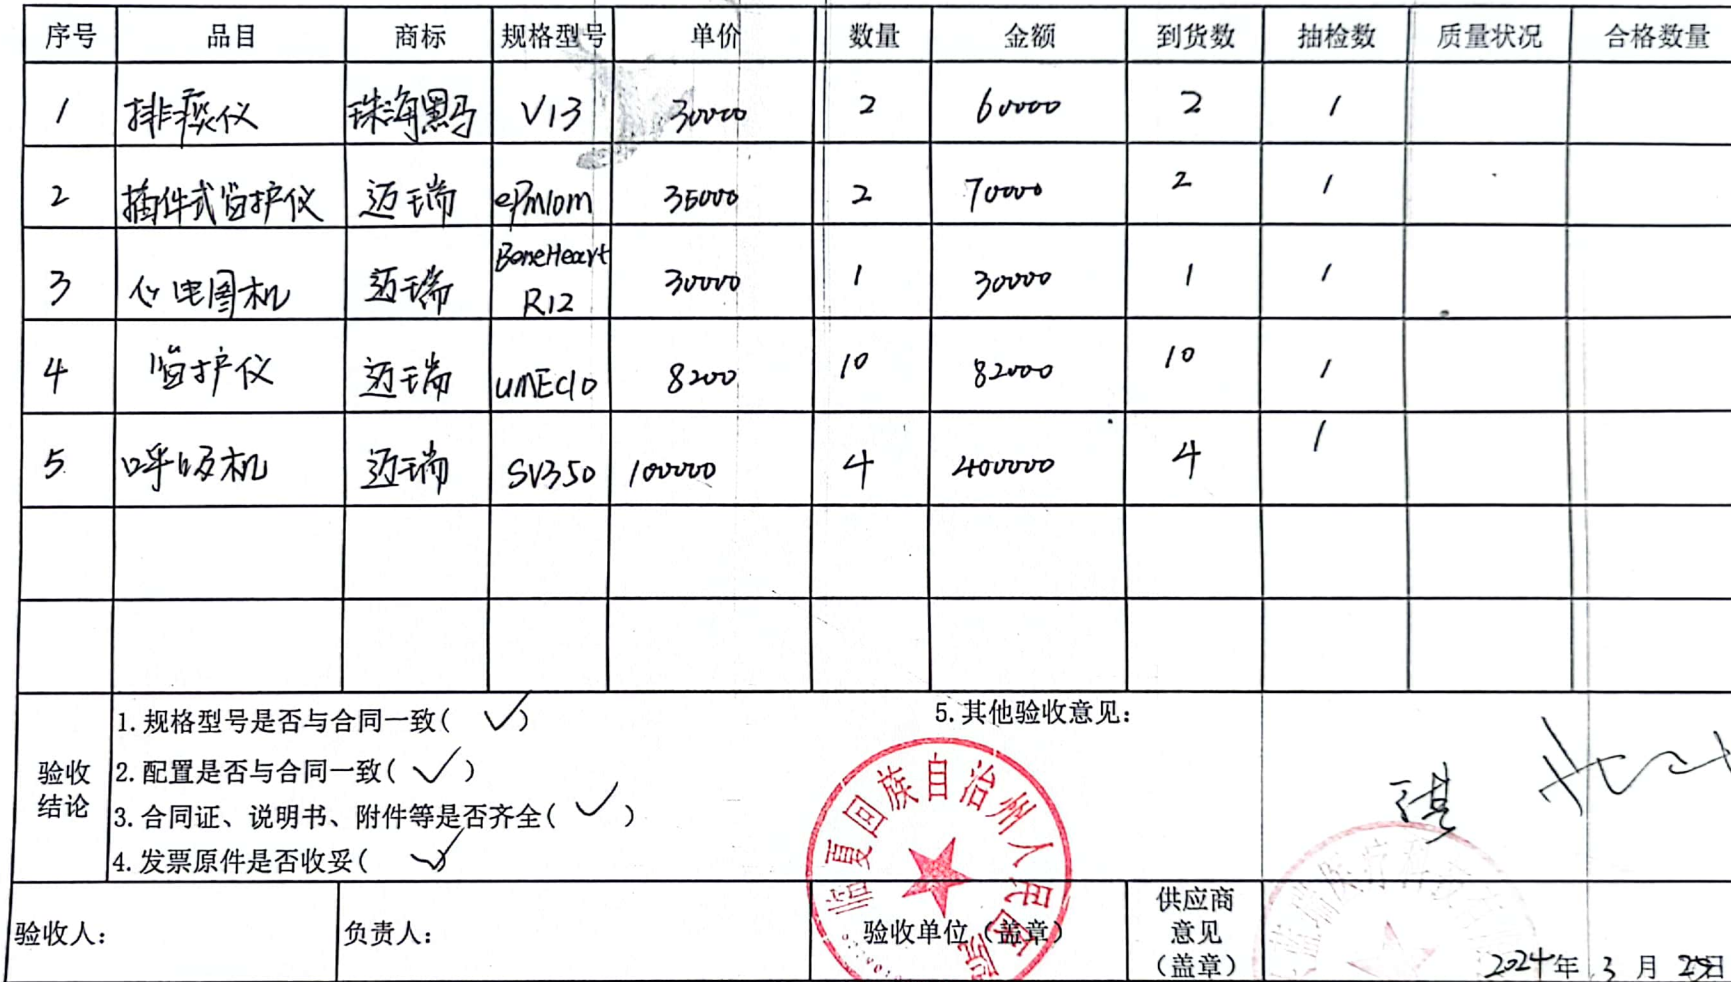 序号 品目 商标 规格型号 单价 数量 金额 到货数 抽检数 质量状况 合格数量
1 排痰仪 珠海黑马 V13 30000 2 60000 2 1
2 插件式监护仪 迈瑞 ePM10m 35000 2 70000 2 1
3 心电图机 迈瑞 BeneHeart R12 30000 1 30000 1 1
4 监护仪 迈瑞 umEC10 8200 10 82000 10 1
5 呼吸机 迈瑞 SV350 100000 4 400000 4 1
验收结论
1.规格型号是否与合同一致( ✓ )
2.配置是否与合同一致( ✓ )
3.合同证、说明书、附件等是否齐全( ✓ )
4.发票原件是否收妥( ✓ )
5.其他验收意见:
临夏回族自治州人民医院
验收人:
负责人:
验收单位（盖章）
供应商
意见
（盖章）
2024年 3 月 25日